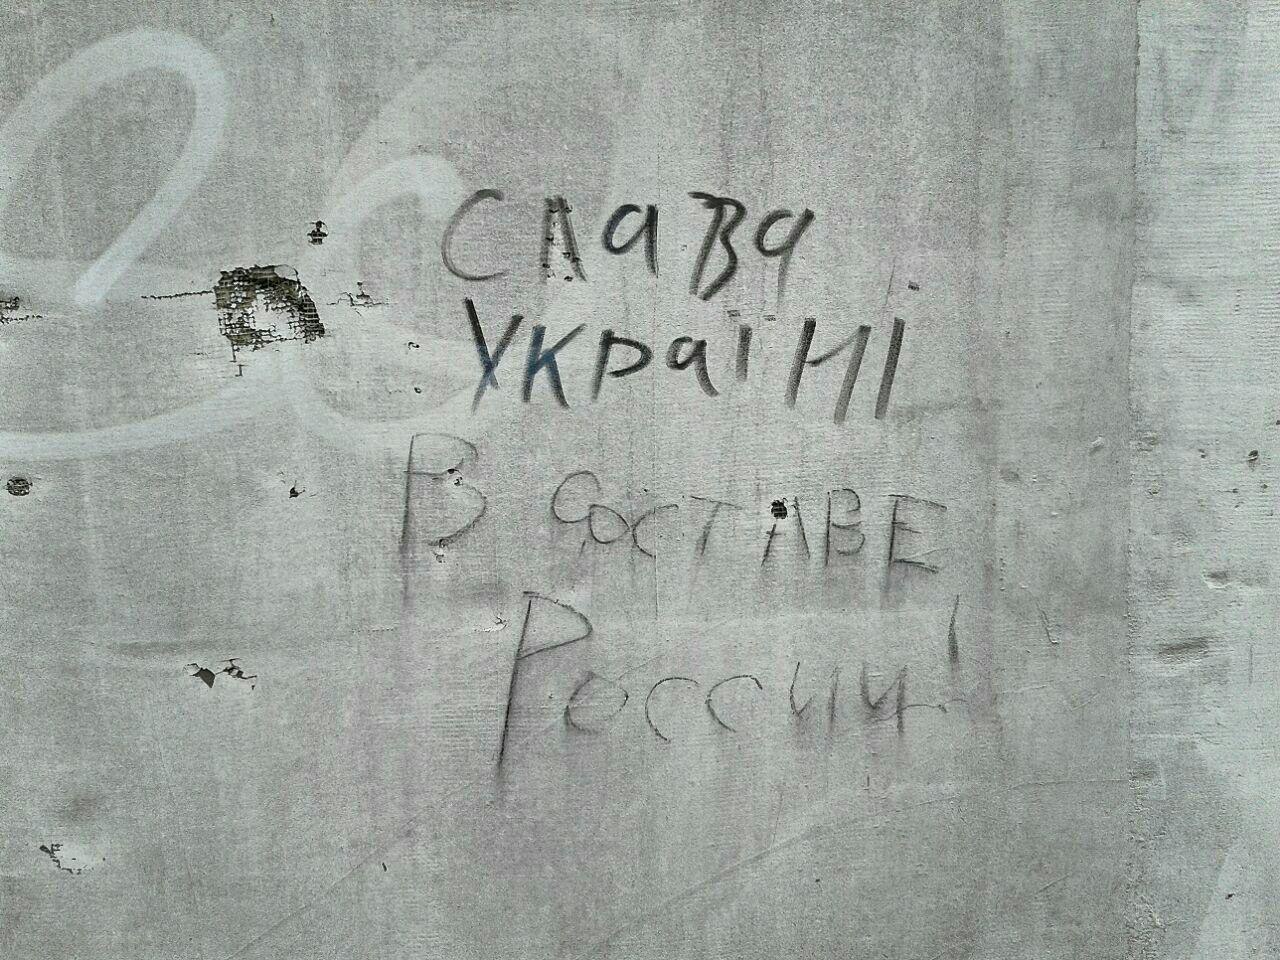 Слава
Україні
В СОСТАВЕ
России!